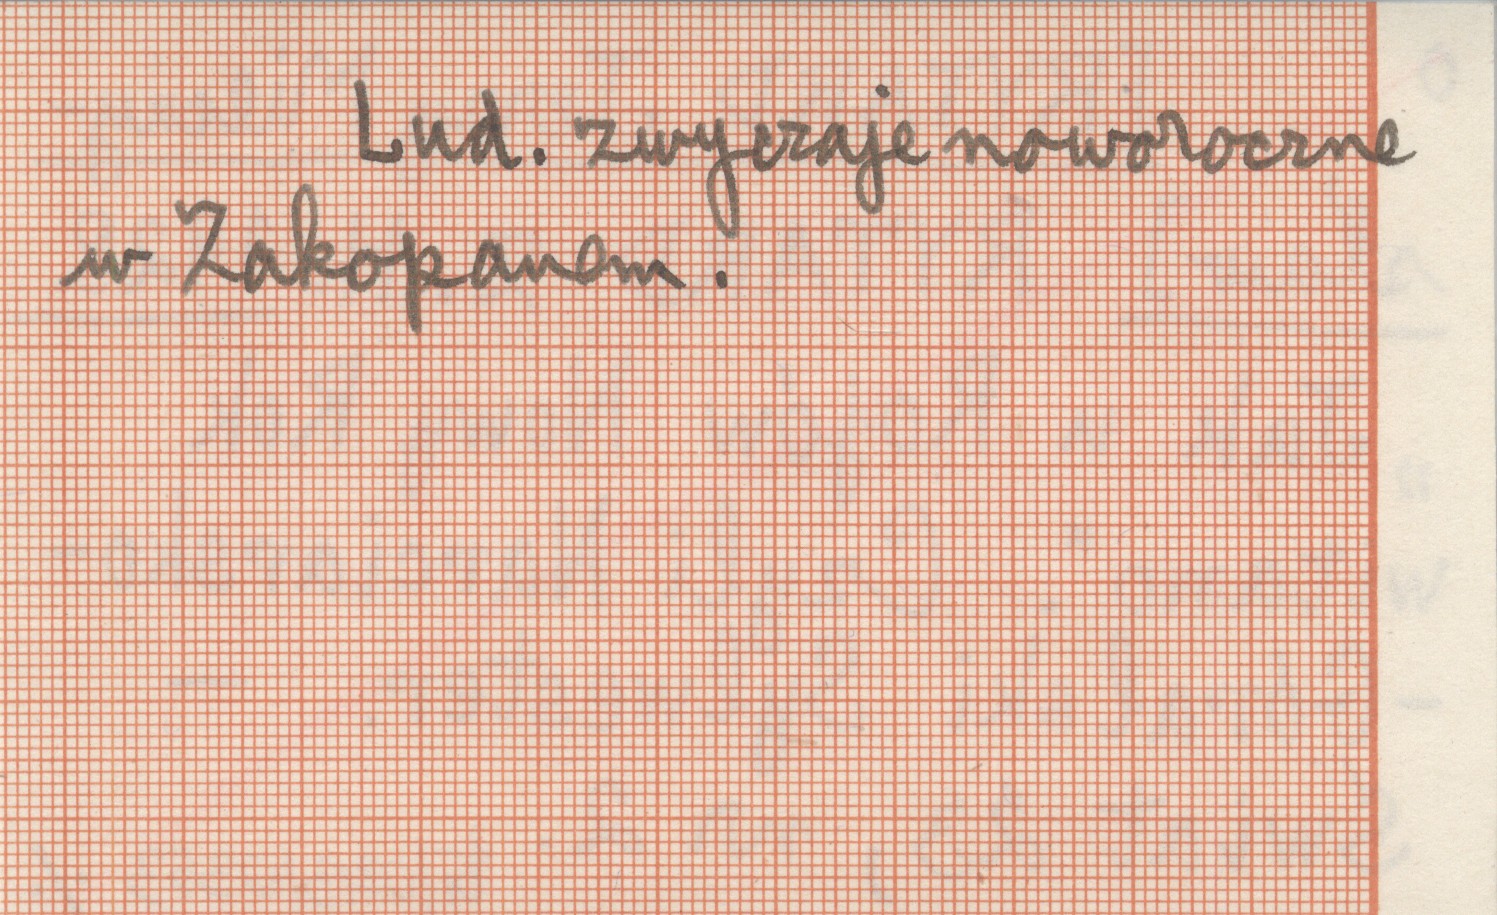 Lud. zwyczaje noworoczne
w Zakopanem.